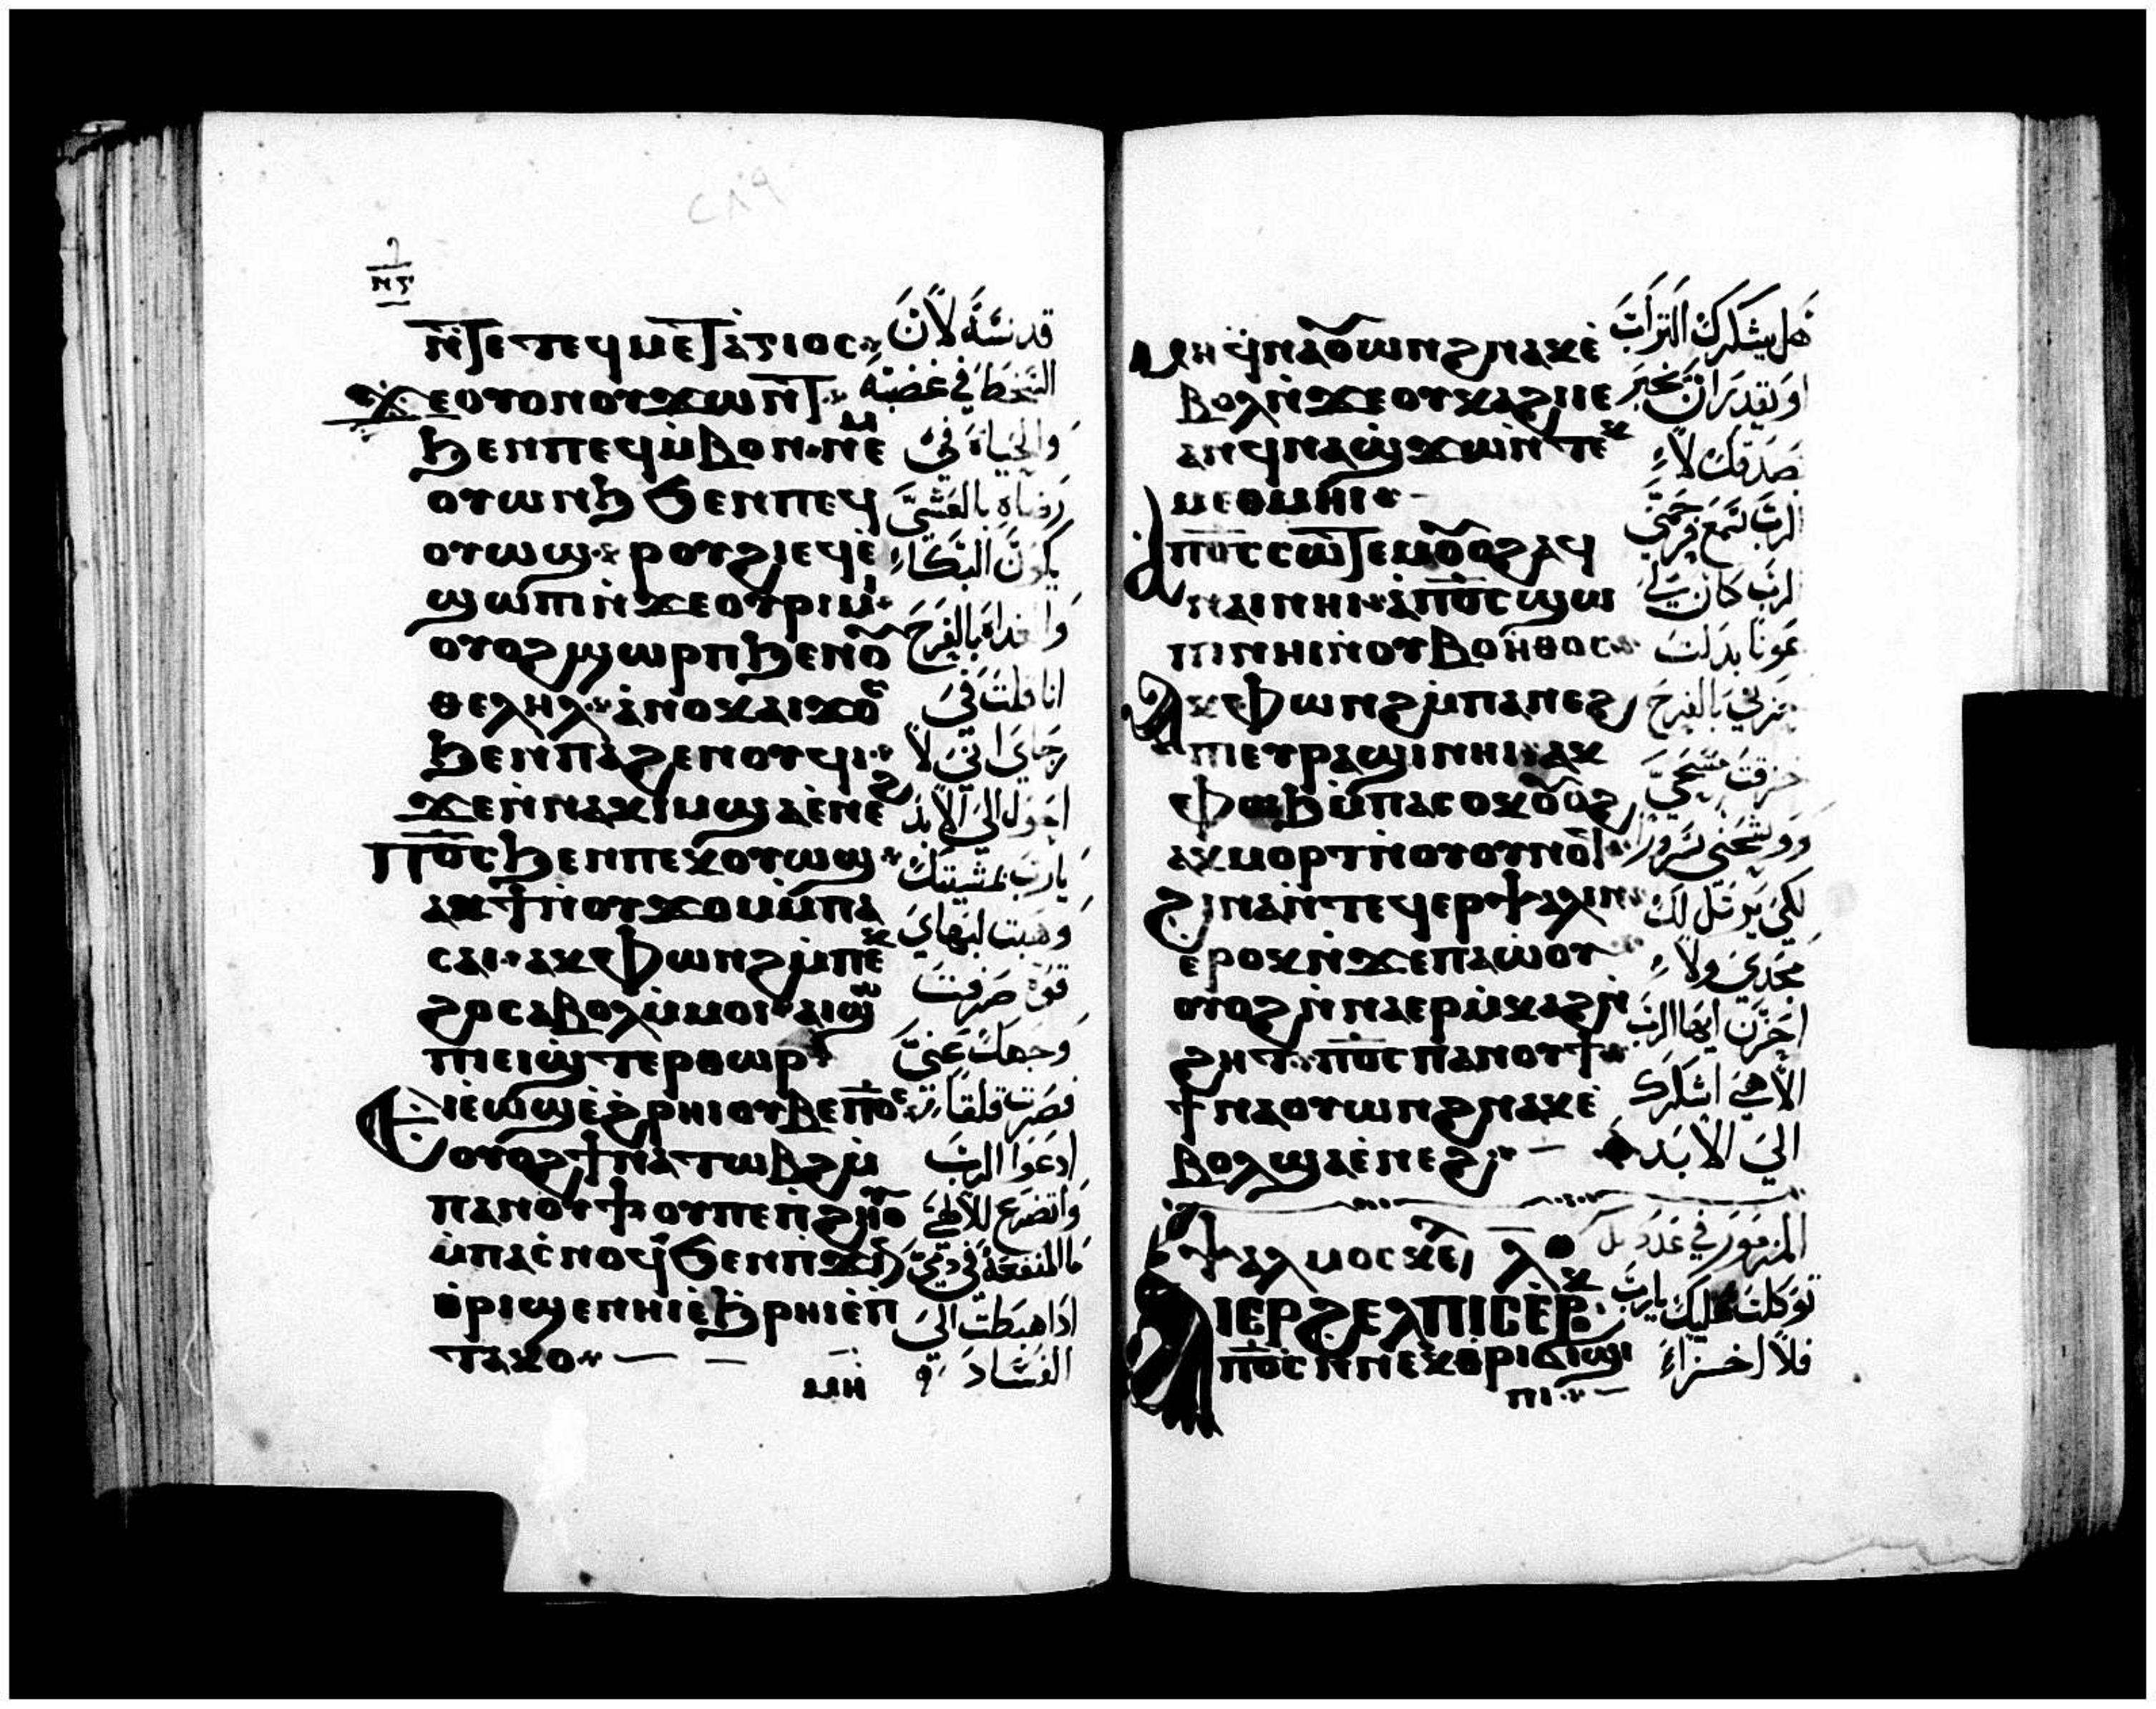 ⲛ̀ⲧⲉⲡⲉϥⲙⲉⲧⲁⲅⲓⲟⲥ
ϫⲉⲟⲩⲟⲛⲟⲩϫⲱⲛⲧ
ϧⲉⲛⲡⲉϥⲙ̀ⲃⲟⲛ ⲛⲉⲙ
ⲟⲩⲱⲛϧ ϧⲉⲛⲡⲉϥ
ⲟⲩⲱϣ ⲣⲟⲩϩⲓ ⲉϥⲉ̀
ϣⲱⲡⲓ ⲛ̀ϫⲉⲟⲩⲣⲓⲙⲓ
ⲟⲩⲟϩ ϣⲱⲣⲡ ϧⲉⲛⲟⲩ
ⲑⲉⲗⲏⲗ ⲁⲛⲟⲕ ⲁⲓϫⲟⲥ
ϧⲉⲛⲡⲁϩⲉⲛⲟⲩϥⲓ
ϫⲉⲛ̀ⲛⲁⲕⲓⲙ ϣⲁⲉⲛⲉϩ
ⲡ̅ⲟ̅ⲥ̅ ϧⲉⲛⲡⲉⲕⲟⲩⲱϣ
ⲁⲕϯⲛ̀ⲟⲩϫⲟⲙ ⲙ̀ⲡⲁ
ⲥⲁⲓ ⲁⲕⲫⲱⲛϩ ⲙ̀ⲡⲉⲕ
ϩⲟ ⲥⲁⲃⲟⲗ ⲙ̀ⲙⲟⲓ ⲁⲓϣⲱ
ⲡⲓ ⲉⲓϣⲧⲉⲣⲑⲱⲣ
ⲉⲓⲉ̀ⲱϣ ⲉ̀ϩⲣⲏⲓ ⲟⲩⲃⲉⲡ̅ⲟ̅ⲥ̅
ⲟⲩⲟϩ ϯⲛⲁⲧⲱⲃϩ ⲙ̀
ⲡⲁⲛⲟⲩϯ ⲟⲩⲡⲉ ⲡ̀ϩⲏⲟⲩ
ⲙ̀ⲡⲁⲥ̀ⲛⲟϥ ϧⲉⲛⲡϫⲓⲛ
ⲑⲣⲓϣⲉⲛⲏⲓ ⲉ̀ϧⲣⲏⲓ ⲉ̀ⲡ
ⲧⲁⲕⲟ
ⲙⲏ
قدسَه لأنَّ
السَّخطَ في غضبه
والحياة في
رضاه بالعشيَّ
يكون البكاء
وَالغداة بالفرح
انا قلت في
رجاي اني لا
احول الي الابد
يارب بمشيتك
وهبت لبهاي
قوة صرفت
وجهك عنيَّ
فصرت قلقا
ادعوا الرب
واتضرع لالهي
ما المنفعة في دمي
اذا هبطت الي
الفساد
ⲙⲏ ϥⲛⲁⲟⲩⲱⲛϩ ⲛⲁⲕ ⲉ̀
ⲃⲟⲗ ⲛ̀ϫⲉⲟⲩⲕⲁϩⲓ ⲓⲉ
ⲁⲛ ϥⲛⲁϣϫⲱ ⲛ̀ⲧⲉⲕ
ⲙⲉⲑⲙⲏⲓ
ⲁⲡ̅ⲟ̅ⲥ̅ ⲥⲱⲧⲉⲙ ⲟⲩⲟϩ ⲁϥ
ⲛⲁⲓ ⲛⲏⲓ ⲁ̀ⲡ̅ⲟ̅ⲥ̅ ϣⲱ
ⲡⲓ ⲛⲏⲓ ⲛ̀ⲟⲩⲃⲟⲏⲑⲟⲥ
ⲁⲕⲫⲱⲛϩ ⲙ̀ⲡⲁⲛⲉϩ
ⲡⲓ ⲉⲩⲣⲁϣⲓ ⲛⲏⲓ ⲁⲕ
ⲫⲱϧ ⲙ̀ⲡⲁⲥⲟⲕ ⲟⲩⲟϩ
ⲁⲕⲙⲟⲣⲧ ⲛ̀ⲟⲩⲟⲩⲛⲟϥ
ϩⲓⲛⲁ ⲛ̀ⲧⲉϥⲉⲣⲯⲁⲗⲓⲛ
ⲉⲣⲟⲕ ⲛ̀ϫⲉⲡⲁⲱⲟⲩ
ⲟⲩⲟϩ ⲛ̀ⲛⲁⲉⲣⲙ̀ⲕⲁϩ ⲛ̀
ϩⲏⲧ ⲡ̅ⲟ̅ⲥ̅ ⲡⲁⲛⲟⲩϯ
ϯⲛⲁⲟⲩⲱⲛϩ ⲛⲁⲕ ⲉ̀
ⲃⲟⲗ ϣⲁⲉ̀ⲛⲉϩ
ⲯⲁⲗⲙⲟⲥ ⲗ̅
ⲁⲓⲉⲣϩⲉⲗⲡⲓⲥ ⲉ̀ⲣⲟⲕ
ⲡ̅ⲟ̅ⲥ̅ ⲛ̀ⲛⲉⲕⲑⲣⲓϭⲓϣⲓ
ⲡⲓ
هل يشكرك التراب
او يقدر ان يخبر
بصدقك لا
الرب سمع فرحمني
الرب كان لي
عونا بدلت
حزني بالفرح
خرقت مسحي
ووشحتني سرورا
لكي يرتل لك
مجدي ولا
احزن ايها الرب
الاهي اشكرك
الي الابد
المزمور في عدد ل
توكلت عليك يارب
فلا اخزاء